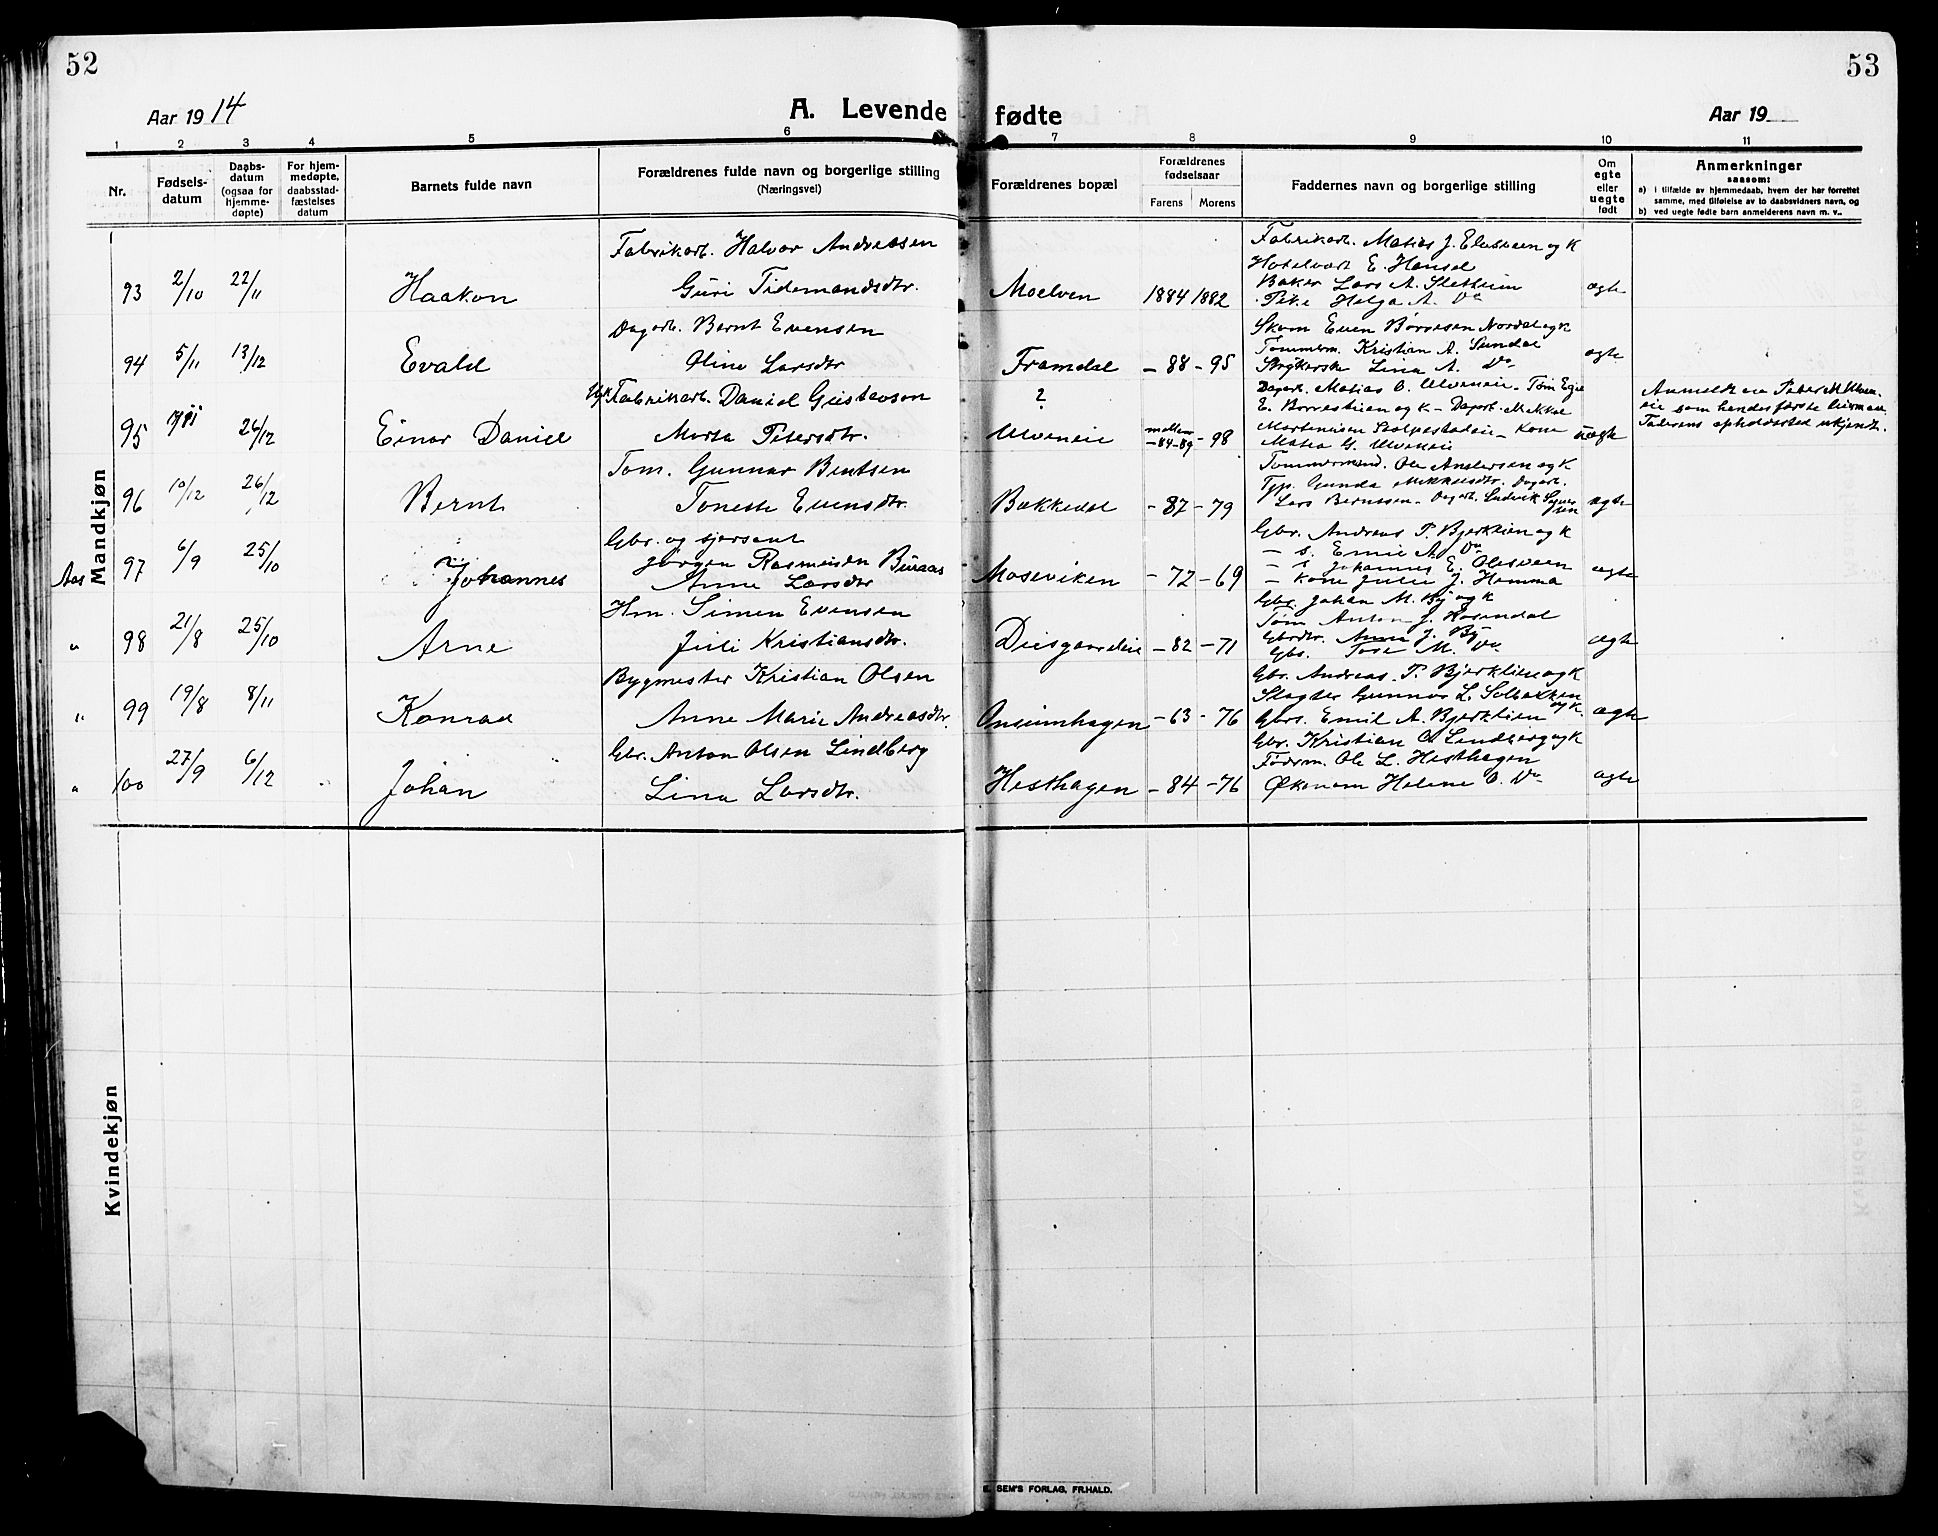 52
53
Aar 1914
A. Levende fødte
Aar 19
1 2 3 4 5 6 7 8 9 10 11
Nr.
Fødsels-
datum
Daabs-
datum
(ogsaa for
hjemme-
døpte)
For hjem-
medøpte,
daabsstad-
fæstelses
datum
Barnets fulde navn
Forældrenes fulde navn og borgerlige stilling
(Næringsvei)
Forældrenes bopæl
Forældrenes
fødselsaar
Farens Morens
Faddernes navn og borgerlige stilling
Om
egte
eller
uegte
født
Anmerkninger
saasom:
a) i tilfælde av hjemmedaab, hvem der har forrettet
samme, med tilføielse av to daabsvidners navn, og
b) ved uegte fødte barn anmelderens navn m. v..
Mandkjøn
93 2/10 22/11 Haakon
Fabrikarb. Halvor Andreasen
Guri Tidemandsdtr.
Moelven 1884 1882
Fabrikarb. Matias J. Elvsveen og k
Hotelvært E. Hansel
Baker Lars A. Sletheim
Pike Helga A. Do
egte
94 5/11 13/12 Evald
Dagarb. Bernt Evensen
Oline Larsdtr
Framdal -88 -95
Skom Even Børresen Nordal og k
Tømmerm. Kristian A. Sundal
Strykerske Lina A. Do
egte
95 26/12 Einar Daniel
Ugk Fabrikarb. Daniel Gustavson
Marta Petersdtr.
?
Ulveneie mellem -84-89 -98
Dagarb. Matias O. Ulveneie - Tøm
E. Borrestuen og k - Dagarb.
Martinisen Stolpestadeie - Kone
Matea G. Ulveneie
uegte
Anmeldt av Peter M Ulven-
eie som hendes første leierm
Faderens opholdssted ukjendt.
96 10/12 26/12 Bernt
Tøm. Gunnar Bentsen
Toneste Evensdtr.
Bakkedal -87 -79
Tømmermand. Ole Andersen og k
Typ. Gunda Mikkelsdtr. Dagarb.
Lars Berntssen - Dagarb. Ludvik
egte
Aas 97 6/9 25/10 Johannes
Gbr. og sjersant
Jørgen Rasmussen Buraas
Anne Larsdtr
Moseviken -72 -69
Gbr. Andreas P. Bjerklien og k
- s. Emil A. Do
- s Johannes E. Olesveen
- Kone Julie J. Hemma
egte
" 98 21/8 25/10 Arne
Hm. Simen Evensen
Juli Kristiansdtr.
Diisgaardeie -82 -71
Gbr. Johan M. By og k
Tøm Anton J. Rosendal
Gbrdtr. Anna J. By
Gbs. Tore M. Do
egte
" 99 19/8 8/11 Konrad
Bygmester Kristian Olsen
Anne Marie Andreasdtr.
Onsumhagen -63 -76
Gbr. Andreas P. Bjerklien og k
Slagter Gunnar L. Solbakken og k.
Gbrs. Emil A. Bjerklien
egte
" 100 27/9 6/12 Johan
Gbr. Anton Olsen Lindberg
Lina Larsdtr.
Hesthagen -84 -76
Gbr. Kristian O. Lindberg og k
Fødsm. Ole L. Hesthagen
Økonom Helene O. Do
egte
Kvindekjøn
E. SEM'S FORLAG, FR.HALD.